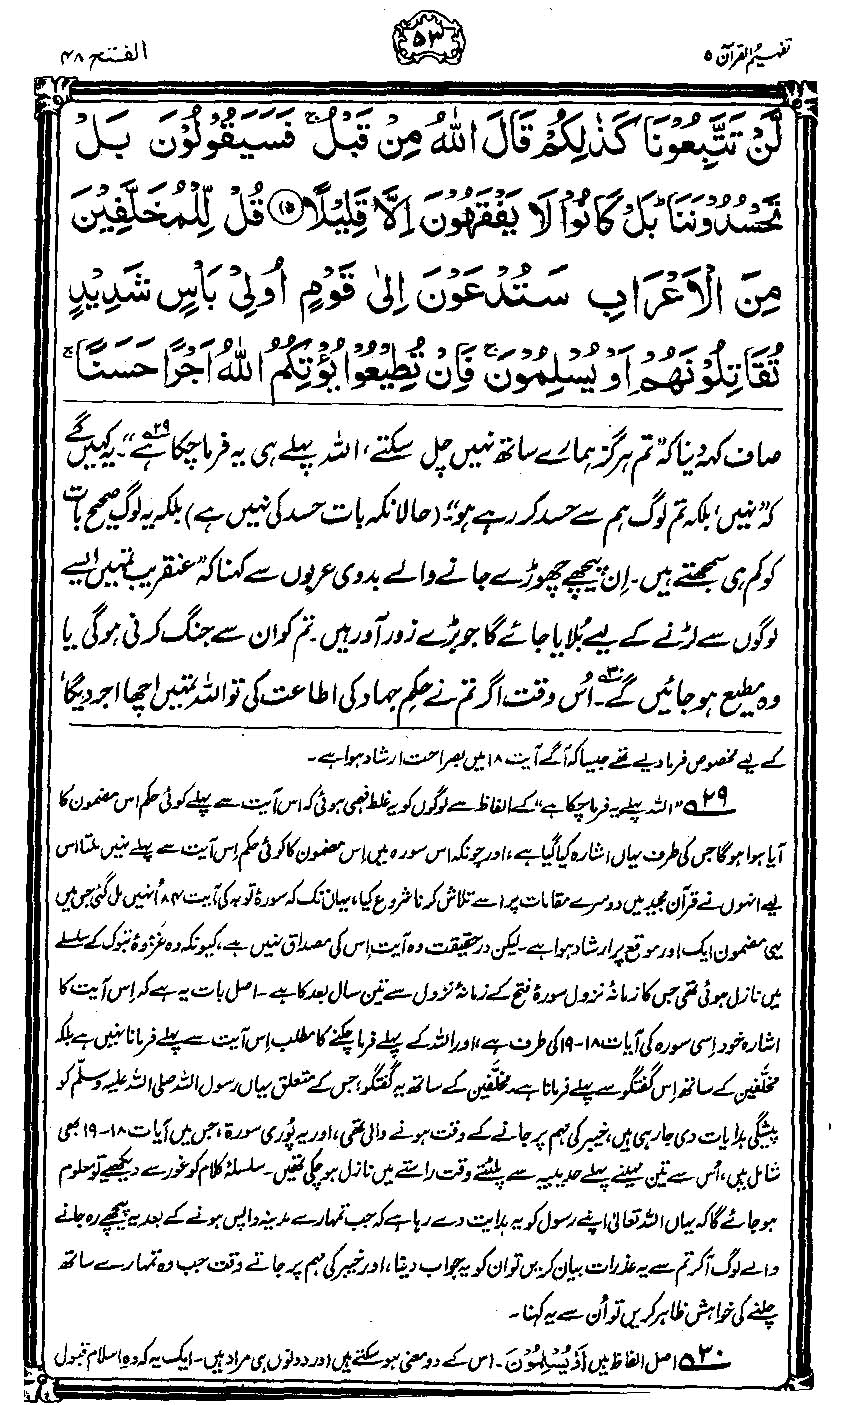 تفہیم القرآن ۵
۵۳
الفتح ۴۸
لَّنْ تَتَّبِعُوْنَا كَذٰلِكُمْ قَالَ اللّٰهُ مِنْ قَبْلُ ۚ فَسَيَقُوْلُوْنَ بَلْ
تَحْسُدُوْنَنَا ؕ بَلْ كَانُوْا لَا يَفْقَهُوْنَ اِلَّا قَلِيْلًا ﴿۱۵﴾ قُلْ لِّلْمُخَلَّفِيْنَ
مِنَ الْاَعْرَابِ سَتُدْعَوْنَ اِلٰى قَوْمٍ اُولِيْ بَاْسٍ شَدِيْدٍ
تُقَاتِلُوْنَهُمْ اَوْ يُسْلِمُوْنَ ۚ فَاِنْ تُطِيْعُوْا يُؤْتِكُمُ اللّٰهُ اَجْرًا حَسَنًا ۚ
صاف کہہ دینا کہ ”تم ہرگز ہمارے ساتھ نہیں چل سکتے، اللہ پہلے ہی یہ فرما چکا ہے۲۹“۔ یہ کہیں گے
کہ ”نہیں، بلکہ تم لوگ ہم سے حسد کر رہے ہو“۔ (حالانکہ بات حسد کی نہیں ہے) بلکہ یہ لوگ صحیح بات
کو کم ہی سمجھتے ہیں۔ اِن پیچھے چھوڑے جانے والے بدوی عربوں سے کہنا کہ ”عنقریب تمہیں ایسے
لوگوں سے لڑنے کے لیے بُلایا جائے گا جو بڑے زور آور ہیں۔ تم کو ان سے جنگ کرنی ہوگی یا
وہ مطیع ہو جائیں گے۳۰۔ اُس وقت اگر تم نے حکمِ جہاد کی اطاعت کی تو اللہ تمہیں اچھا اجر دیگا،
کے لیے مخصوص فرما دیے تھے جیسا کہ آگے آیت ۱۸ میں بصراحت ارشاد ہوا ہے۔
۲۹ھ ”اللہ پہلے یہ فرما چکا ہے“ کے الفاظ سے لوگوں کو یہ غلط فہمی ہوئی کہ اس آیت سے پہلے کوئی حکم اس مضمون کا
آیا ہوا ہوگا جس کی طرف یہاں اشارہ کیا گیا ہے، اور چونکہ اس سورہ میں اس مضمون کا کوئی حکم اِس آیت سے پہلے نہیں ملتا اس
لیے انہوں نے قرآن مجید میں دوسرے مقامات پر اسے تلاش کرنا شروع کیا، یہاں تک کہ سورۂ توبہ کی آیت ۸۴ اُنہیں مل گئی جس میں
یہی مضمون ایک اور موقع پر ارشاد ہوا ہے۔ لیکن درحقیقت وہ آیت اِس کی مصداق نہیں ہے، کیونکہ وہ غزوۂ تبوک کے سلسلے
میں نازل ہوئی تھی جس کا زمانۂ نزول سورۂ فتح کے زمانۂ نزول سے تین سال بعد کا ہے۔ اصل بات یہ ہے کہ اِس آیت کا
اشارہ خود اِسی سورہ کی آیات ۱۸-۱۹ کی طرف ہے، اور اللہ کے پہلے فرما چکنے کا مطلب اِس آیت سے پہلے فرمانا نہیں ہے بلکہ
مخلّفین کے ساتھ اِس گفتگو سے پہلے فرمانا ہے۔ مخلّفین کے ساتھ یہ گفتگو، جس کے متعلق یہاں رسول اللہ صلی اللہ علیہ وسلم کو
پیشگی ہدایات دی جا رہی ہیں، خیبر کی مہم پر جانے کے وقت ہونے والی تھی، اور یہ پُوری سورۃ، جس میں آیات ۱۸-۱۹ بھی
شامل ہیں، اُس سے تین مہینے پہلے حدیبیہ سے پلٹتے وقت راستے میں نازل ہو چکی تھیں۔ سلسلۂ کلام کو غور سے دیکھیے تو معلوم
ہو جائے گا کہ یہاں اللہ تعالیٰ اپنے رسول کو یہ ہدایت دے رہا ہے کہ جب تمہارے مدینہ واپس ہونے کے بعد یہ پیچھے رہ جانے
والے لوگ آکر تم سے یہ عذرات بیان کریں تو ان کو یہ جواب دینا، اور خیبر کی مہم پر جاتے وقت جب وہ تمہارے ساتھ
چلنے کی خواہش ظاہر کریں تو اُن سے یہ کہنا۔
۳۰ھ اصل الفاظ ہیں اَوْ یُسْلِمُوْنَ۔ اس کے دو معنی ہو سکتے ہیں اور دونوں ہی مراد ہیں۔ ایک یہ کہ وہ اسلام قبول